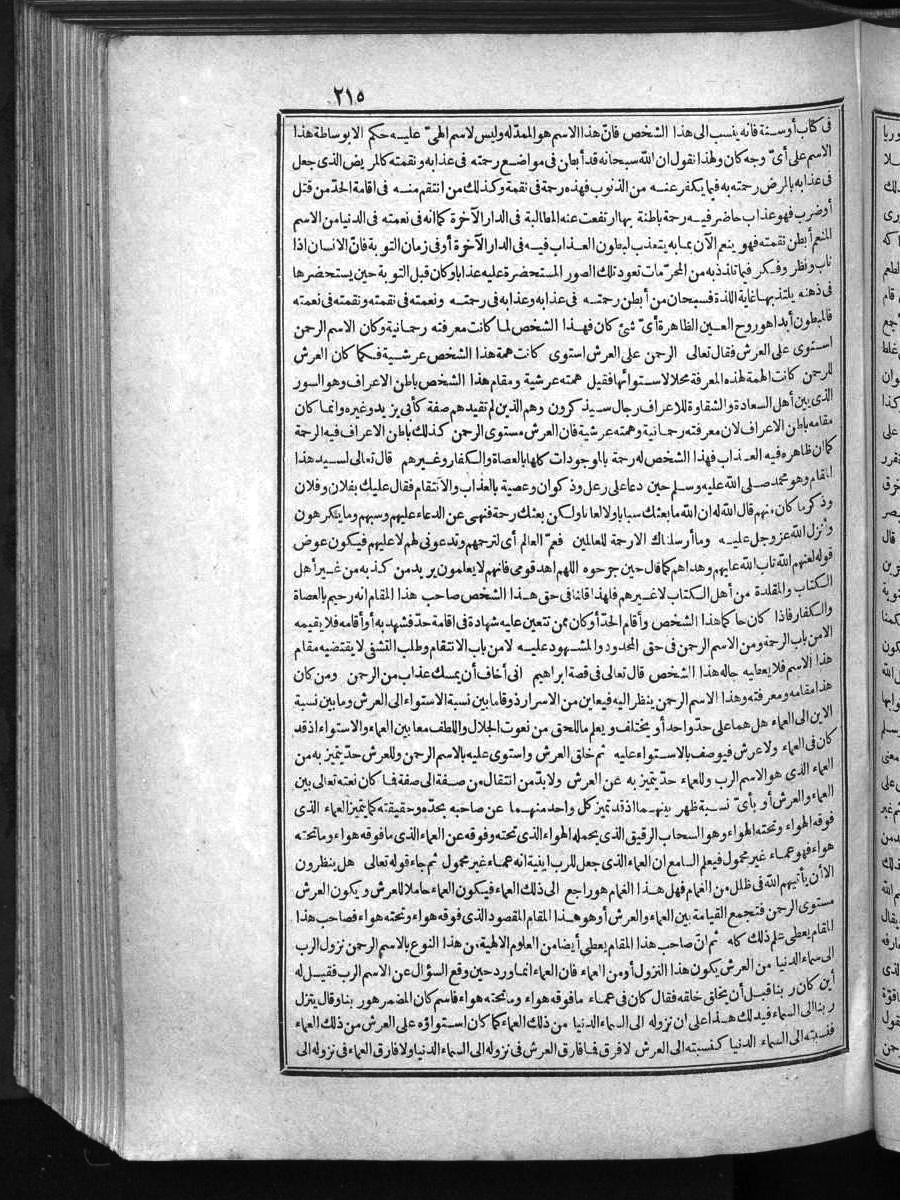 ٢١٥
فى كتاب أوسنة فانه ينسب الى هذا الشخص فانّ هذا الاسم هو الممدّ له وليس لاسم الهىّ عليه حكم الا بوساطة هذا
الاسم على أىّ وجه كان ولهذا نقول ان الله سبحانه قد أبطن فى مواضع رحمته فى عذابه ونقمته كالمريض الذى جعل
فى عذابه بالمرض رحمته به فيما يكفر عنه من الذنوب فهذه رحمة فى نقمة وكذلك من انتقم منه فى اقامة الحدّ من قتل
أوضرب فهو عذاب حاضر فيه رحمة باطنة بها ارتفعت عنه المطالبة فى الدار الآخرة كما انه فى نعمته فى الدنيا من الاسم
المنعم أبطن نقمته فهو ينعم الآن بما به يتعذب لبطون العذاب فيه فى الدار الآخرة أوفى زمان التوبة فانّ الانسان اذا
تاب ونظر وفكر فيما تلذذ به من المحرّمات تعود تلك الصور المستحضرة عليه عذابا وكان قبل التوبة حين يستحضرها
فى ذهنه يلتذ بها غاية اللذة فسبحان من أبطن رحمته فى عذابه وعذابه فى رحمته ونعمته فى نقمته ونقمته فى نعمته
فالمبطون أبدا هو روح العين الظاهرة أىّ شئ كان فهذا الشخص لما كانت معرفته رحمانية وكان الاسم الرحمن
استوى على العرش فقال تعالى الرحمن على العرش استوى كانت همة هذا الشخص عرشية فكما كان العرش
للرحمن كانت الهمة لهذه المعرفة محلا لاستوائها فقيل همته عرشية ومقام هذا الشخص باطن الاعراف وهو السور
الذى بين أهل السعادة والشقاوة للاعراف رجال سيذكرون وهم الذين لم تقيدهم صفة كأبى يزيد وغيره وانما كان
مقامه باطن الاعراف لان معرفته رحمانية وهمته عرشية فان العرش مستوى الرحمن كذلك باطن الاعراف فيه الرحمة
كما ان ظاهره فيه العذاب فهذا الشخص له رحمة بالموجودات كلها بالعصاة والكفار وغيرهم قال تعالى لسيد هذا
المقام وهو محمد صلى الله عليه وسلم حين دعا على رعل وذكوان وعصية بالعذاب والانتقام فقال عليك بفلان وفلان
وذكر ما كان منهم قال الله له ان الله ما بعثك سبابا ولا لعانا ولكن بعثك رحمة فنهى عن الدعاء عليهم وسبهم وما يتكرهون
وأنزل الله عز وجل عليه وما أرسلناك الا رحمة للعالمين فعمّ العالم أى لترحمهم وتدعونى لهم لا عليهم فيكون عوض
قوله لعنهم الله تاب الله عليهم وهداهم كما قال حين جرحوه اللهم اهد قومى فانهم لا يعلمون يريد من كذبه من غير أهل
الكتاب والمقلدة من أهل الكتاب لا غيرهم فلهذا قلنا فى حق هذا الشخص صاحب هذا المقام انه رحيم بالعصاة
والكفار فاذا كان حاكما هذا الشخص وأقام الحدّ أو كان ممن تتعين عليه شهادة فى اقامة حدّ فشهد به أو أقامه فلا يقيمه
الا من باب الرحمة ومن الاسم الرحمن فى حق المحدود والمشهود عليه لا من باب الانتقام وطلب التشفى لا يقتضيه مقام
هذا الاسم فلا يعطيه حاله هذا الشخص قال تعالى فى قصة ابراهيم انى أخاف أن يمسك عذاب من الرحمن ومن كان
هذا مقامه ومعرفته وهذا الاسم الرحمن ينظر اليه فيعاين من الاسرار ذوقا ما بين نسبة الاستواء الى العرش وما بين نسبة
الاين الى العماء هل هما على حدّ واحد أو يختلف ويعلم ما للحق من نعوت الجلال واللطف معا بين العماء والاستواء اذ قد
كان فى العماء ولا عرش فيوصف بالاستواء عليه ثم خلق العرش واستوى عليه بالاسم الرحمن وللعرش حدّ يتميز به من
العماء الذى هو الاسم الرب وللعماء حدّ يتميز به عن العرش ولا بدّ من انتقال من صفة الى صفة فما كان نعته تعالى بين
العماء والعرش أو بأىّ نسبة ظهر بينهما اذ قد تميز كل واحد منهما عن صاحبه بحدّه وحقيقته كما يتميز العماء الذى
فوقه الهواء وتحته الهواء وهو السحاب الرقيق الذى يحمله الهواء الذى تحته وفوقه عن العماء الذى ما فوقه هواء وما تحته
هواء فهو عماء غير محمول فيعلم السامع ان العماء الذى جعل للرب اينية انه عماء غير محمول ثم جاء قوله تعالى هل ينظرون
الا أن يأتيهم الله فى ظلل من الغمام فهل هذا الغمام هو راجع الى ذلك العماء فيكون العماء حاملا للعرش ويكون العرش
مستوى الرحمن فتجمع القيامة بين العماء والعرش أو هو هذا المقام المقصود الذى فوقه هواء وتحته هواء فصاحب هذا
المقام يعطى علم ذلك كله ثم انّ صاحب هذا المقام يعطى أيضا من العلوم الالهية من هذا النوع بالاسم الرحمن نزول الرب
الى سماء الدنيا من العرش يكون هذا النزول أو من العماء فان العماء انما ورد حين وقع السؤال عن الاسم الرب فقيل له
أين كان ربنا قبل أن يخلق خلقه فقال كان فى عماء ما فوقه هواء وما تحته هواء فاسم كان المضمر هو ربنا وقال ينزل
ربنا الى السماء فيدلك هذا على ان نزوله الى السماء الدنيا من ذلك العماء كما كان استواؤه على العرش من ذلك العماء
فنسبته الى السماء الدنيا كنسبته الى العرش لا فرق فما فارق العرش فى نزوله الى السماء الدنيا ولا فارق العماء فى نزوله الى